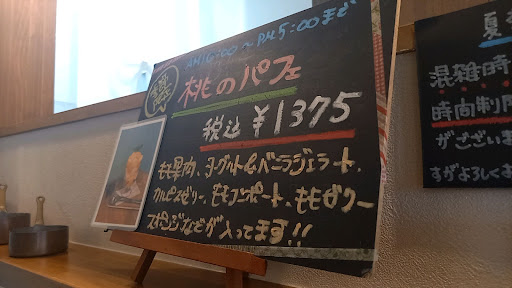 AM10:00～PM5:00まで
数量限定
桃のパフェ
税込 ¥1375
もも果肉、ヨーグルト&バニラジェラート、
カルピスゼリー、ももコンポート、ももゼリー
スポンジなどが入ってます!!
混雑時
時間制限
がございま
すがよろしくお